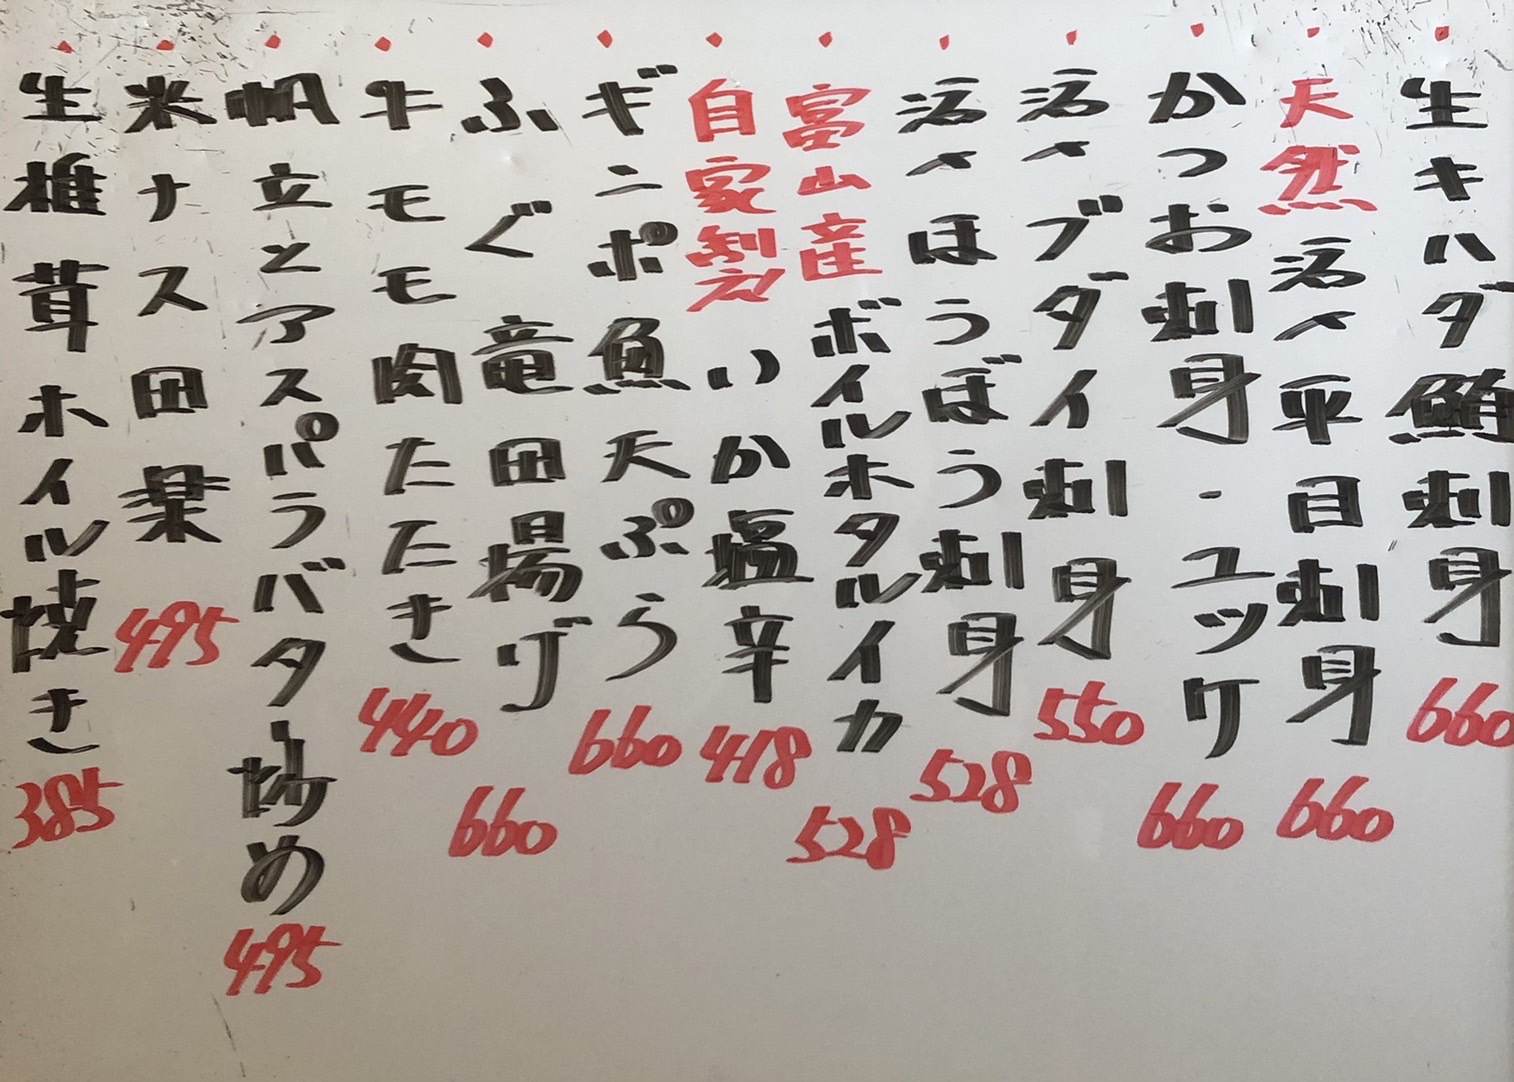 生キハダ鮪刺身 660
天然活〆平目刺身 660
かつお刺身・ユッケ 660
活〆ブダイ刺身 550
活〆ほうぼう刺身 528
富山産ボイルホタルイカ 528
自家製いか塩辛 418
ギンポ魚天ぷら 660
ふぐ竜田揚げ 660
牛モモ肉たたき 440
帆立とアスパラバター炒め 495
米ナス田楽 495
生椎茸ホイル焼き 385